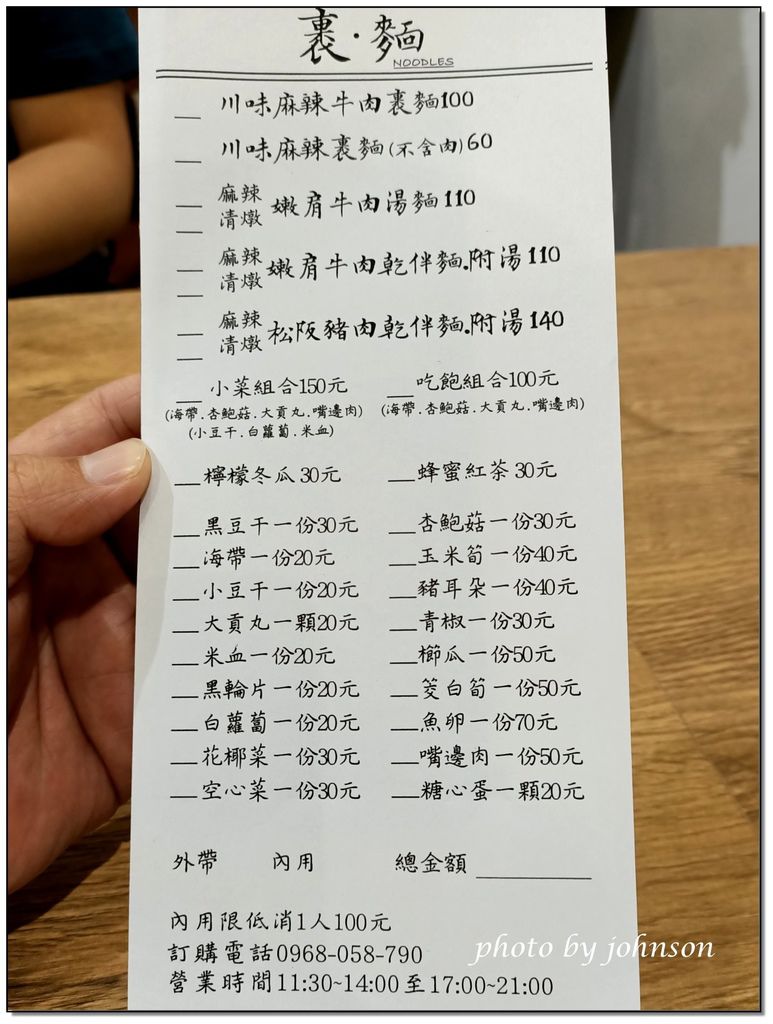 裹·麵
NOODLES
川味麻辣牛肉裹麵100
川味麻辣裹麵(不含肉)60
麻辣
清燉 嫩肩牛肉湯麵110
麻辣
清燉 嫩肩牛肉乾伴麵.附湯110
麻辣
清燉 松阪豬肉乾伴麵.附湯140
小菜組合150元 吃飽組合100元
(海帶.杏鮑菇.大貢丸.嘴邊肉) (海帶.杏鮑菇.大貢丸.嘴邊肉)
(小豆干.白蘿蔔.米血)
檸檬冬瓜30元 蜂蜜紅茶30元
黑豆干一份30元 杏鮑菇一份30元
海帶一份20元 玉米筍一份40元
小豆干一份20元 豬耳朵一份40元
大貢丸一顆20元 青椒一份30元
米血一份20元 櫛瓜一份50元
黑輪片一份20元 茭白筍一份50元
白蘿蔔一份20元 魚卵一份70元
花椰菜一份30元 嘴邊肉一份50元
空心菜一份30元 糖心蛋一顆20元
外帶 內用 總金額
內用限低消1人100元
訂購電話0968-058-790
營業時間11:30~14:00至17:00~21:00
photo by johnson